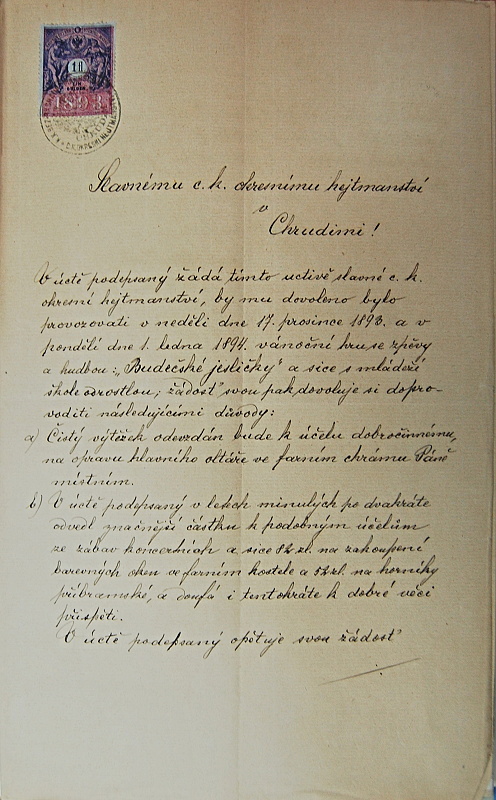 10
1893
Slavnému c. k. okresnímu hejtmanství
v
Chrudimi!
V úctě podepsaný žádá tímto uctivě slavné c. k.
okresní hejtmanství, by mu dovoleno bylo
provozovati v neděli dne 17. prosince 1893. a v
pondělí dne 1. ledna 1894. vánoční hru se zpěvy
a hudbou: „Budečské jesličky" a sice s mládeží
škole odrostlou; žádosť svou pak dovoluje si dopro-
voditi následujícími důvody:
a) Čistý výtěžek odevzdán bude k účelu dobročinnému,
na opravu hlavního oltáře ve farním chrámu Páně
místním.
b) V úctě podepsaný v letech minulých po dvakráte
odvedl značnější částku k podobným účelům
ze zábav koncertních a sice 82 zl. na zakoupení
barevných oken ve farním kostele a 52 zl. na horníky
příbramské, a doufá i tentokráte k dobré věci
přispěti.
V úctě podepsaný opětuje svou žádosť